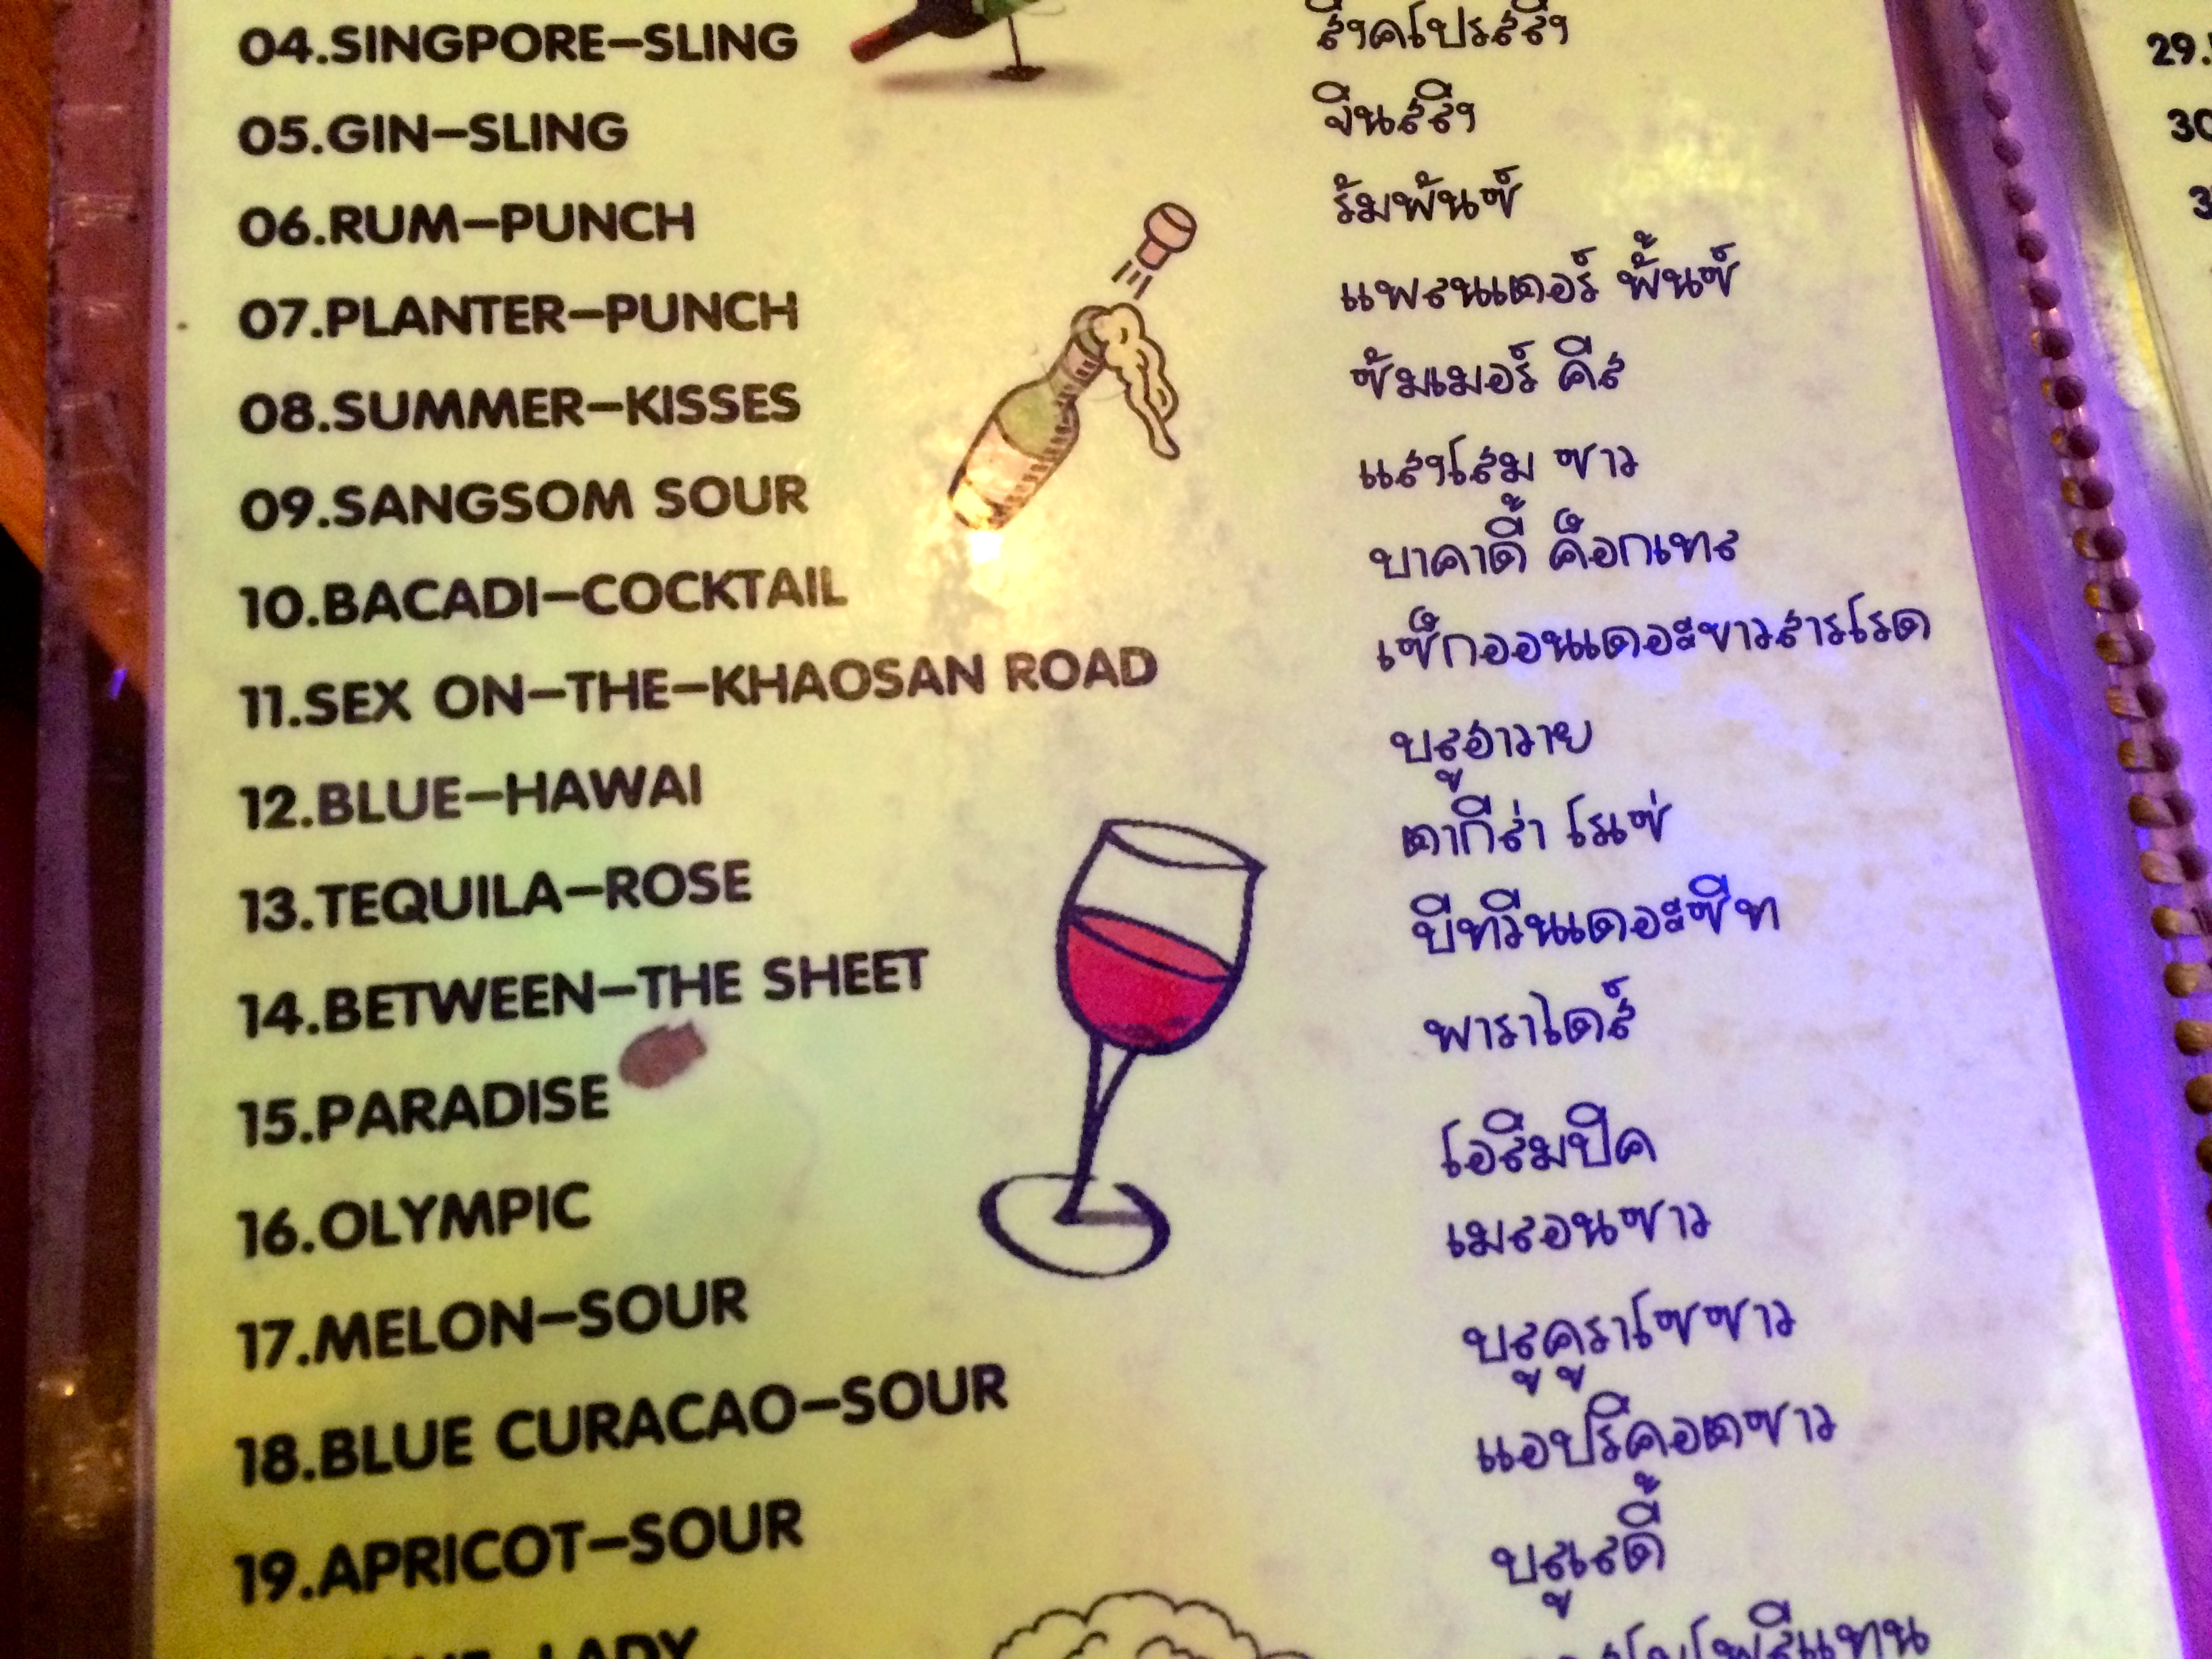 04.SINGPORE-SLING สิงคโปรสลิง
05.GIN-SLING จินสลิง
06.RUM-PUNCH รัมพันซ์
07.PLANTER-PUNCH แพลนเตอร์ พั้นซ์
08.SUMMER-KISSES ซัมเมอร์ คีส
09.SANGSOM SOUR แสงโสม ซาว
10.BACADI-COCKTAIL บาคาดี้ ค็อกเทล
11.SEX ON-THE-KHAOSAN ROAD เซ็กออนเดอะขาวสารโรด
12.BLUE-HAWAI บลูฮาวาย
13.TEQUILA-ROSE ตากีล่า โรเซ่
14.BETWEEN-THE SHEET บีทวีนเดอะซีท
15.PARADISE พาราไดส์
16.OLYMPIC โอลิมปิค
17.MELON-SOUR เมลอนซาว
18.BLUE CURACAO-SOUR บลูคูราโซซาว
19.APRICOT-SOUR แอปริคอตซาว
LADY บลูเลดี้
29.
30
3